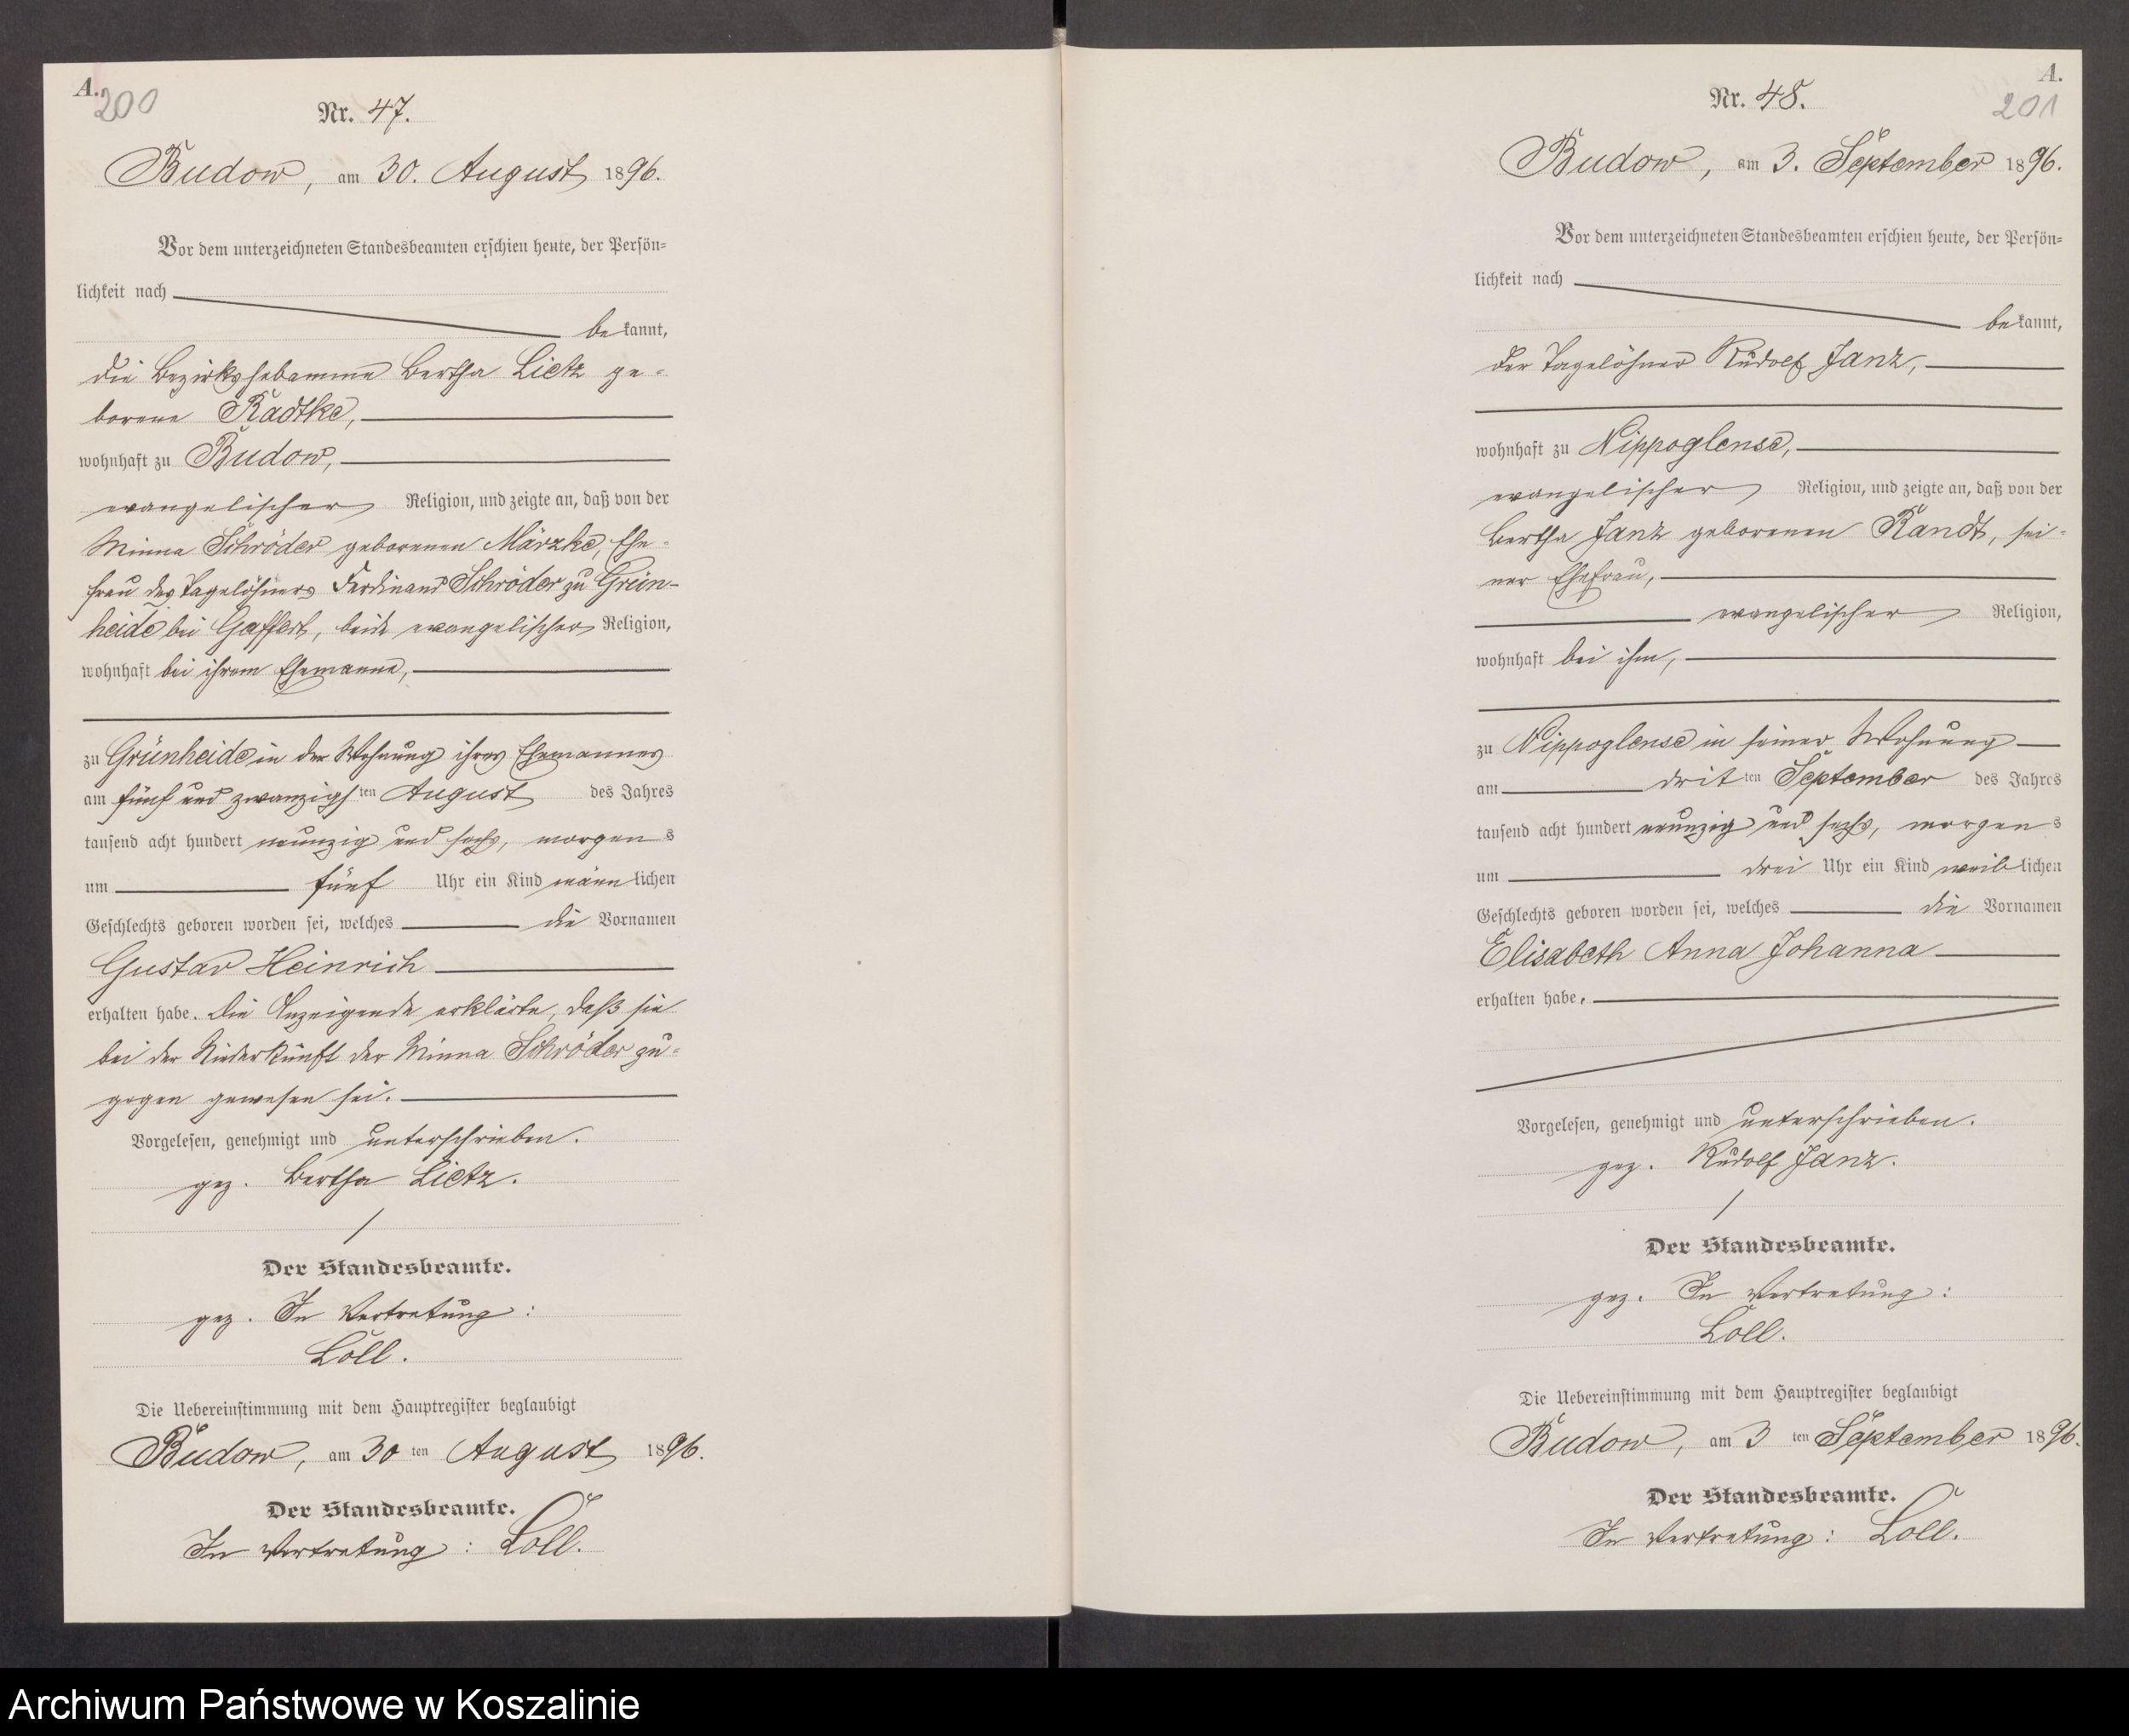 A.
200
Nr. 47.
Budow, am 30. August 1896.
Vor dem unterzeichneten Standesbeamten erschien heute, der Persön=
lichkeit nach
bekannt,
die Bezirkshebamme Bertha Lietz ge=
borene Radtke,
wohnhaft zu Budow,
evangelischer Religion, und zeigte an, daß von der
Minna Schröder geborenen Märzke, Ehe=
frau des Tagelöhners Ferdinand Schröder zu Grün=
heide bei Gaffert, beide evangelischer Religion,
wohnhaft bei ihrem Ehemanne,
zu Grünheide in der Wohnung ihres Ehemannes
am fünf und zwanzigsten August des Jahres
tausend acht hundert neunzig und sechs, morgens
um fünf Uhr ein Kind männlichen
Geschlechts geboren worden sei, welches die Vornamen
Gustav Heinrich
erhalten habe. Die Anzeigende erklärte, daß sie
bei der Niederkunft der Minna Schröder zu=
gegen gewesen sei.
Vorgelesen, genehmigt und unterschrieben.
gez. Bertha Lietz.
Der Standesbeamte.
gez. In Vertretung:
Loll.
Die Uebereinstimmung mit dem Hauptregister beglaubigt
Budow, am 30ten August 1896.
Der Standesbeamte.
In Vertretung: Loll.
A.
201
Nr. 48.
Budow, am 3. September 1896.
Vor dem unterzeichneten Standesbeamten erschien heute, der Persön=
lichkeit nach
bekannt,
der Tagelöhner Rudolf Janz,
wohnhaft zu Nippoglense,
evangelischer Religion, und zeigte an, daß von der
Bertha Janz geborenen Randt, sei=
ner Ehefrau,
evangelischer Religion,
wohnhaft bei ihm,
zu Nippoglense in seiner Wohnung
am dritten September des Jahres
tausend acht hundert neunzig und sechs, morgens
um drei Uhr ein Kind weiblichen
Geschlechts geboren worden sei, welches die Vornamen
Elisabeth Anna Johanna
erhalten habe.
Vorgelesen, genehmigt und unterschrieben.
gez. Rudolf Janz.
Der Standesbeamte.
gez. In Vertretung:
Loll.
Die Uebereinstimmung mit dem Hauptregister beglaubigt
Budow, am 3ten September 1896.
Der Standesbeamte.
In Vertretung: Loll.
Archiwum Państwowe w Koszalinie